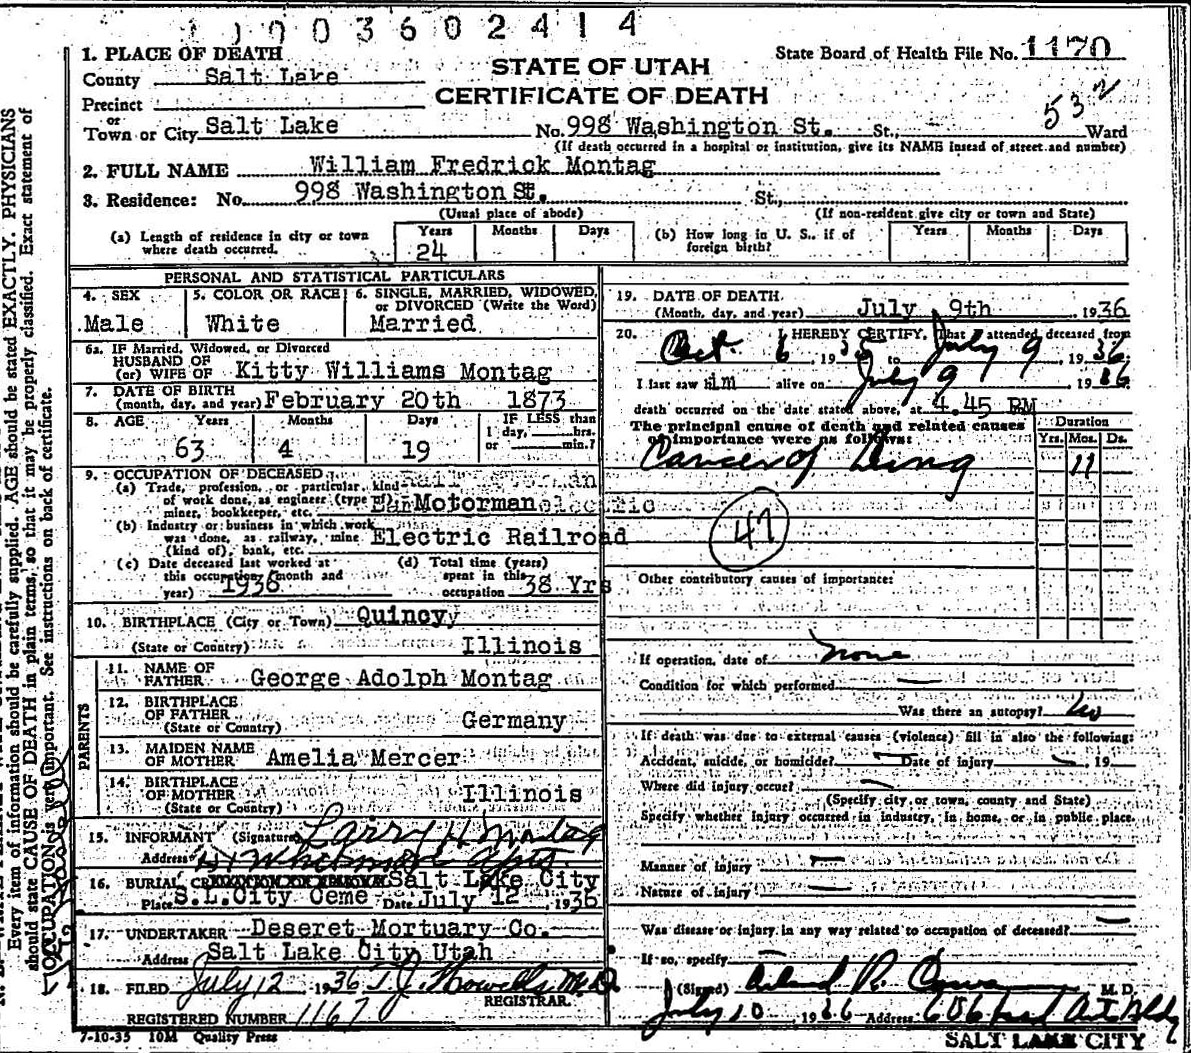 1003602414
1. PLACE OF DEATH
State Board of Health File No. 1170
County Salt Lake
STATE OF UTAH
Precinct
CERTIFICATE OF DEATH
532
or
Town or City Salt Lake No. 998 Washington St. St., Ward
(If death occurred in a hospital or institution, give its NAME instead of street and number)
2. FULL NAME William Fredrick Montag
3. Residence: No. 998 Washington St. St.,
(Usual place of abode) (If non-resident give city or town and State)
(a) Length of residence in city or town where death occurred. Years 24 Months Days
(b) How long in U. S., if of foreign birth? Years Months Days
PERSONAL AND STATISTICAL PARTICULARS
4. SEX Male
5. COLOR OR RACE White
6. SINGLE, MARRIED, WIDOWED, or DIVORCED (Write the Word) Married
6a. IF Married, Widowed, or Divorced
HUSBAND OF
(or) WIFE OF Kitty Williams Montag
7. DATE OF BIRTH
(month, day, and year) February 20th 1873
8. AGE Years 63 Months 4 Days 19 IF LESS than 1 day, hrs. or min.?
9. OCCUPATION OF DECEASED
(a) Trade, profession, or particular kind
of work done, as engineer (type of) Motorman
miner, bookkeeper, etc.
(b) Industry or business in which work
was done, as railway, mine Electric Railroad
(kind of), bank, etc.
(c) Date deceased last worked at this occupation (month and year) 1936
(d) Total time (years) spent in this occupation 38 Yrs
10. BIRTHPLACE (City or Town) Quincy
(State or Country) Illinois
PARENTS
11. NAME OF FATHER George Adolph Montag
12. BIRTHPLACE OF FATHER (State or Country) Germany
13. MAIDEN NAME OF MOTHER Amelia Mercer
14. BIRTHPLACE OF MOTHER (State or Country) Illinois
15. INFORMANT (Signature) Larry H Montag
Address Apts.
16. BURIAL Salt Lake City
Place S.L.City Ceme Date July 12, 1936
17. UNDERTAKER Deseret Mortuary Co.
Address Salt Lake City Utah
18. FILED July 12 1936 M.D.
REGISTRAR.
REGISTERED NUMBER 1167
7-10-35 10M Quality Press
19. DATE OF DEATH
(Month, day, and year) July 9th, 1936
20. I HEREBY CERTIFY, That I attended deceased from
Oct. 6 1935 to July 9 1936
I last saw him alive on July 9 1936
death occurred on the date stated above, at 4.45 PM
The principal cause of death and related causes
of importance were as follows:
Duration
Yrs. Mos. Ds.
Cancer of Lung 11
47
Other contributory causes of importance:
If operation, date of none
Condition for which performed
Was there an autopsy? No
If death was due to external causes (violence) fill in also the following:
Accident, suicide, or homicide? Date of injury , 19
Where did injury occur?
(Specify city or town, county and State)
Specify whether injury occurred in industry, in home, or in public place.
Manner of injury
Nature of injury
Was disease or injury in any way related to occupation of deceased?
If so, specify
(Signed) M. D.
July 10 1936 Address 606
SALT LAKE CITY
Every item of information should be carefully supplied. AGE should be stated EXACTLY. PHYSICIANS
should state CAUSE OF DEATH in plain terms, so that it may be properly classified. Exact statement of
OCCUPATION is very important. See instructions on back of certificate.